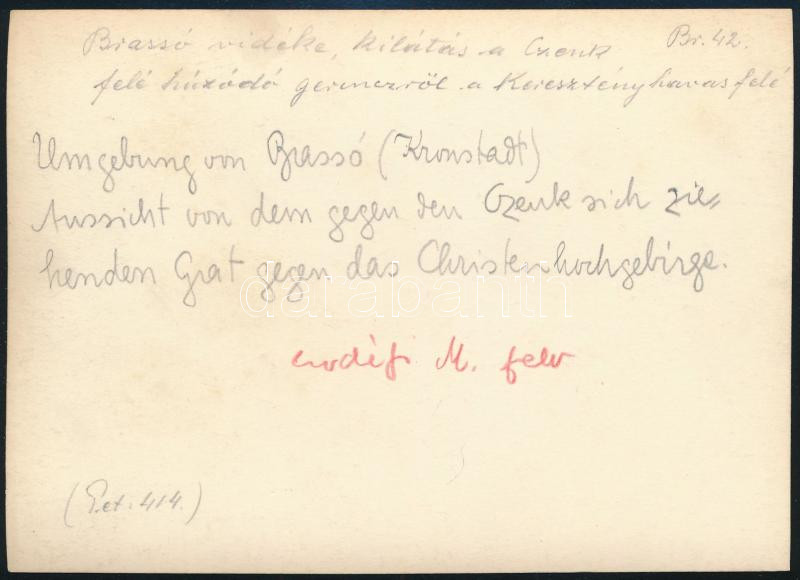 Brassó vidéke, kilátás a Czenk Br. 42.
felé húzódó gerinczről a Keresztényhavas felé
Umgebung von Brassó (Kronstadt)
Aussicht von dem gegen den Czenk sich zie=
henden Grat gegen das Christenhochgebirge.
darabanth
Erdélyi M. felv
(Pct. 414.)